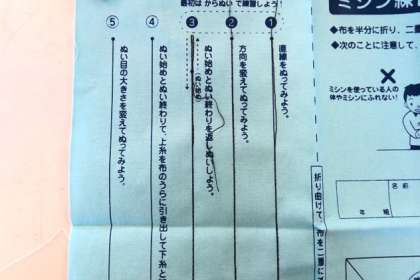 ミシン練
◆布を半分に折り、二重
◆次のことに注意して、
ミシンを使っている人の
体やミシンにふれない!
年 組
名 前
折り曲げて、布を二重に
最初は からぬい で練習しよう!
① 直線をぬってみよう。
② 方向を変えてぬってみよう。
③ ぬい始めとぬい終わりを返しぬいしよう。
(ぬい始め)
④ ぬい始めとぬい終わりで、上糸を布のうらに引き出して下糸と
⑤ ぬい目の大きさを変えてぬってみよう。